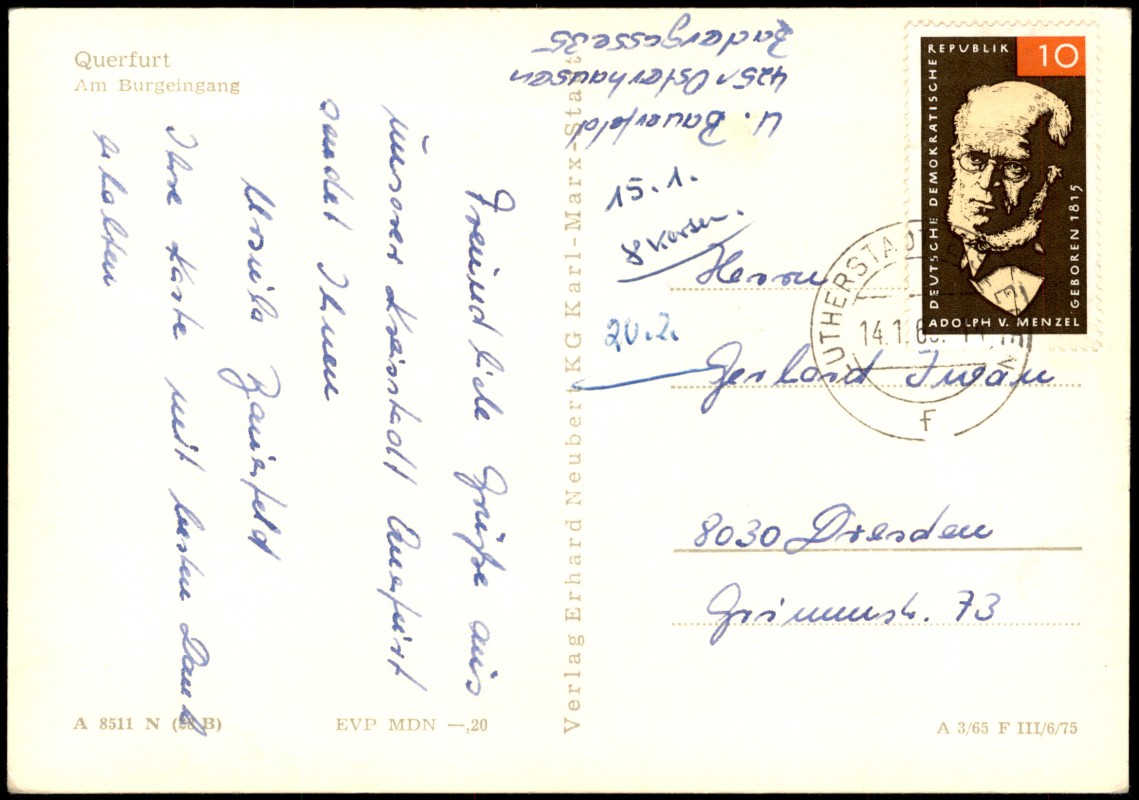 Querfurt
Am Burgeingang
Freundliche Grüße aus
unserer Kreisstadt Querfurt
sendet Ihnen
Ursula Bauerfeld
Ihre Karte mit besten Dank
erhalten
A 8511 N (B)
EVP MDN —,20
Verlag Erhard Neubert KG Karl-Marx-Stadt
U. Bauerfeld
4251 Osterhausen
Badergasse 35
15.1.
8 Karten.
20.2.
DEUTSCHE DEMOKRATISCHE REPUBLIK
10
GEBOREN 1815
ADOLPH V. MENZEL
LUTHERSTADT
14.1.6
f
Herrn
Gerhard Iwan
8030 Dresden
Grimmstr. 73
A 3/65 F III/6/75